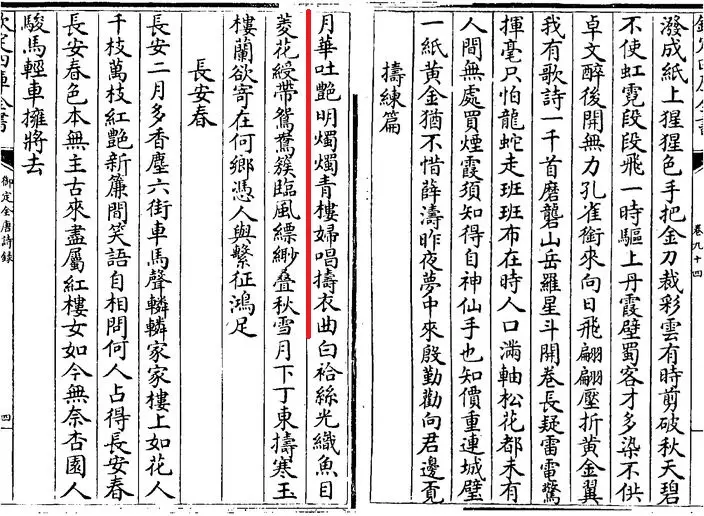 潑成紙上猩猩色手把金刀裁彩雲有時剪破秋天碧
不使虹霓段段飛一時驅上丹霞壁蜀客才多染不供
卓文醉後開無力孔雀銜來向日飛翩翩壓折黃金翼
我有歌詩一千首磨礲山岳羅星斗開卷長疑雷電驚
揮毫只怕龍蛇走班班布在時人口滿軸松花都未有
人間無處買煙霞須知得自神仙手也知價重連城璧
一紙黃金猶不惜薛濤昨夜夢中來殷勤勸向君邊覔
擣練篇
卷九十四
月華吐艷明燭燭青樓婦唱擣衣曲白袷絲光織魚目
菱花綬帶鴛鴦簇臨風縹緲疊秋雪月下丁東擣寒玉
樓蘭欲寄在何鄉憑人與繫征鴻足
長安春
長安二月多香塵六街車馬聲轔轔家家樓上如花人
千枝萬枝紅艷新簾間笑語自相問何人占得長安春
長安春色本無主古來盡屬紅樓女如今無奈杏園人
駿馬輕車擁將去
欽定四庫全書
御定全唐詩錄
四